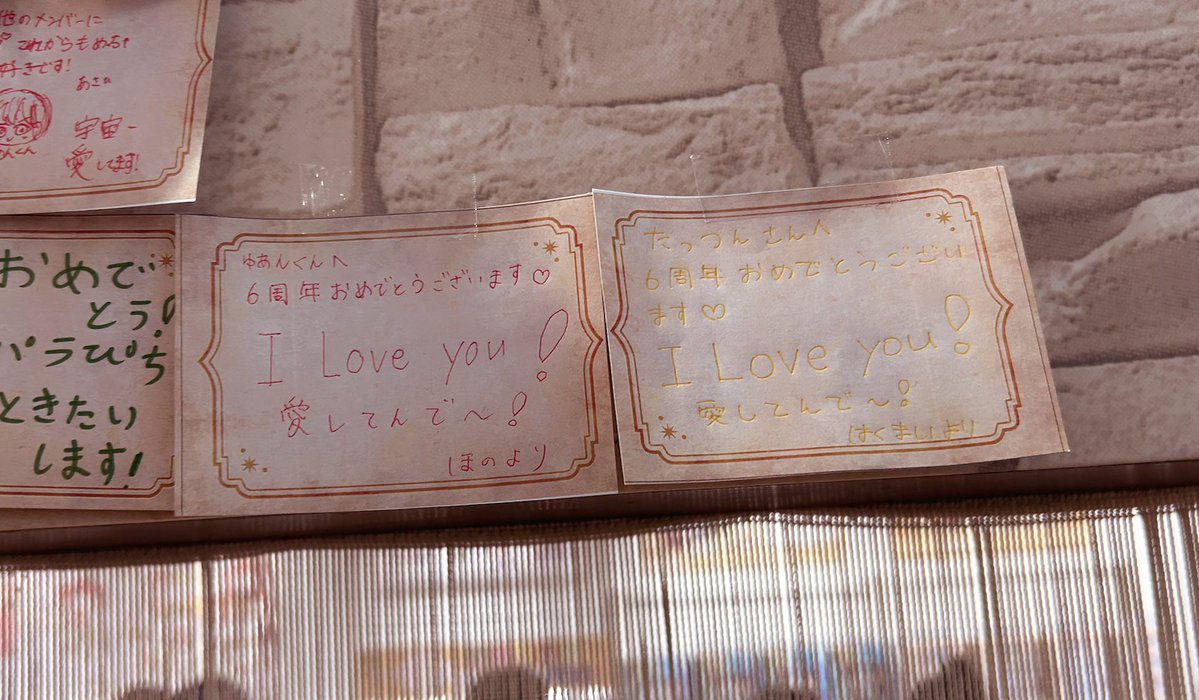 他のメンバーに
これからもめちゃ
好きです!
あさひ
宇宙一
愛してます!
おめで
とう!
パラぴち
ときたい
します!
ゆあんくんへ
6周年おめでとうございます♡
I Love you!
愛してんで〜!
ほのより
たっつんさんへ
6周年おめでとうござい
ます♡
I Love you!
愛してんで〜!
はくまいより